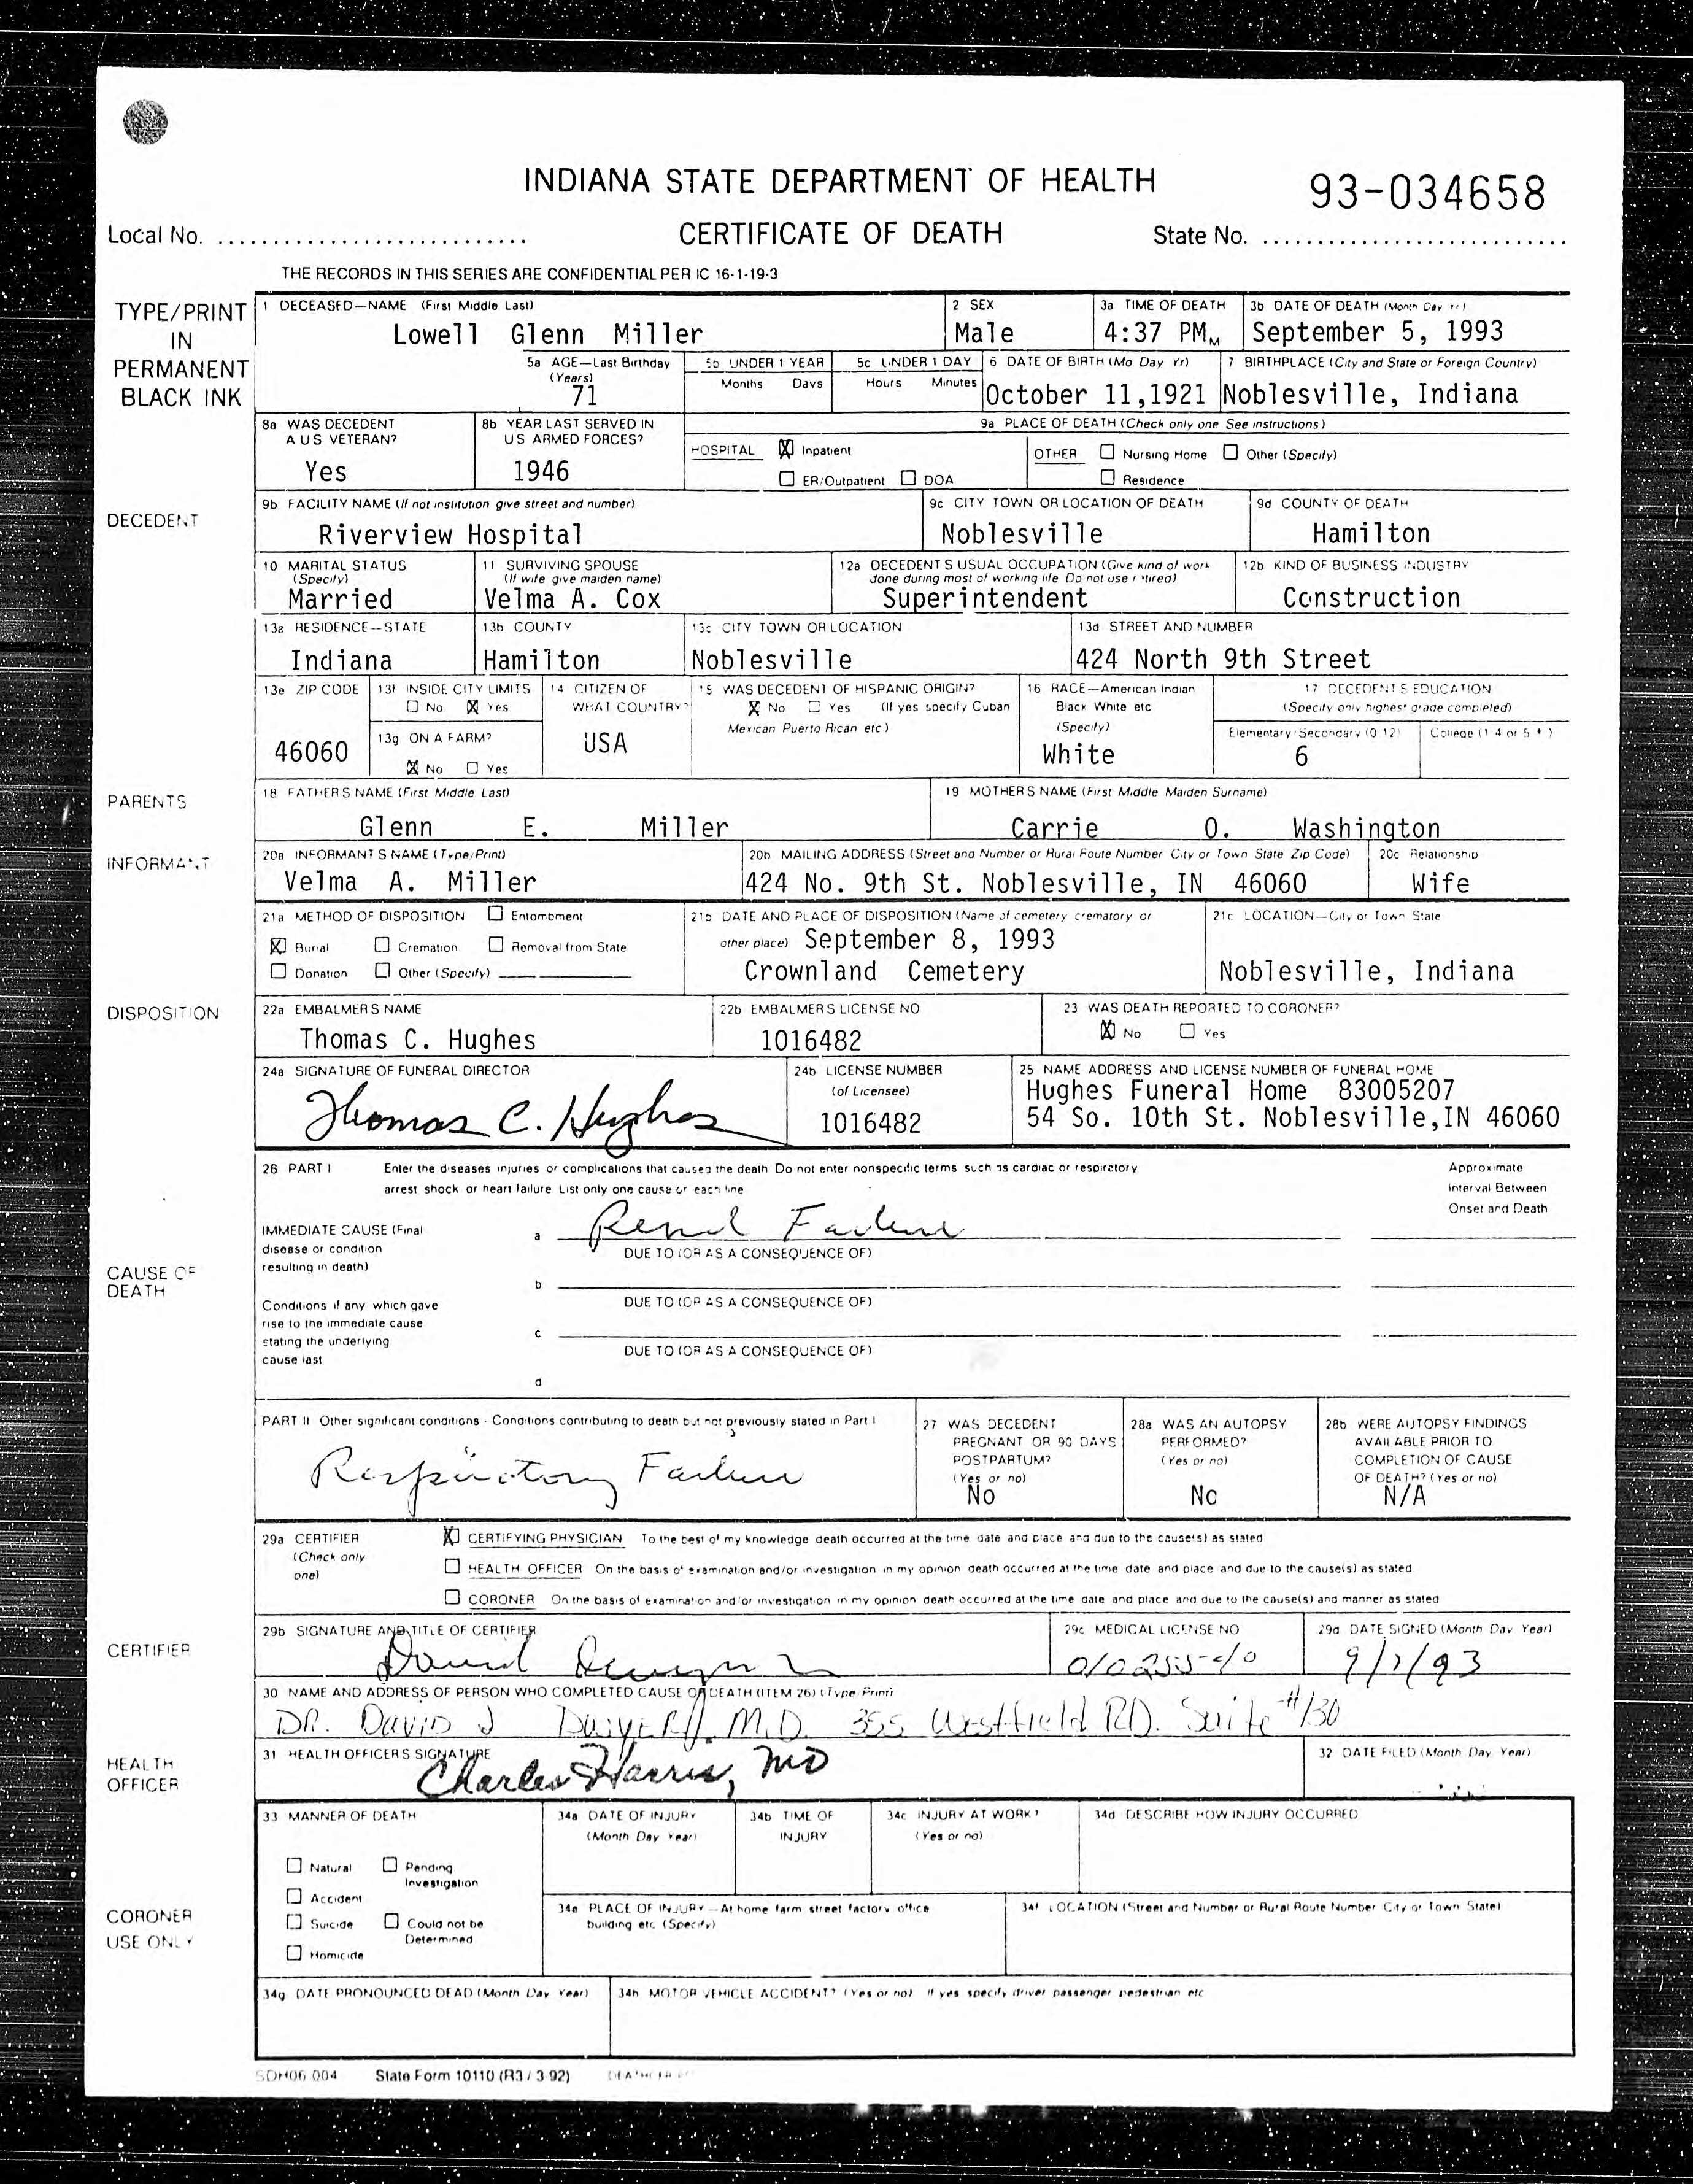 INDIANA STATE DEPARTMENT OF HEALTH
93-034658
Local No. ............................
CERTIFICATE OF DEATH
State No. ............................
THE RECORDS IN THIS SERIES ARE CONFIDENTIAL PER IC 16-1-19-3
TYPE/PRINT
IN
PERMANENT
BLACK INK
1 DECEASED—NAME (First Middle Last)
Lowell Glenn Miller
2 SEX
Male
3a TIME OF DEATH
4:37 PM M
3b DATE OF DEATH (Month Day Yr)
September 5, 1993
5a AGE—Last Birthday
(Years)
71
5b UNDER 1 YEAR
Months Days
5c UNDER 1 DAY
Hours Minutes
6 DATE OF BIRTH (Mo Day Yr)
October 11,1921
7 BIRTHPLACE (City and State or Foreign Country)
Noblesville, Indiana
DECEDENT
8a WAS DECEDENT
A U S VETERAN?
Yes
8b YEAR LAST SERVED IN
U S ARMED FORCES?
1946
9a PLACE OF DEATH (Check only one See instructions)
HOSPITAL ☒ Inpatient
☐ ER/Outpatient ☐ DOA
OTHER ☐ Nursing Home ☐ Other (Specify)
☐ Residence
9b FACILITY NAME (If not institution give street and number)
Riverview Hospital
9c CITY TOWN OR LOCATION OF DEATH
Noblesville
9d COUNTY OF DEATH
Hamilton
10 MARITAL STATUS
(Specify)
Married
11 SURVIVING SPOUSE
(If wife give maiden name)
Velma A. Cox
12a DECEDENT S USUAL OCCUPATION (Give kind of work
done during most of working life Do not use retired)
Superintendent
12b KIND OF BUSINESS INDUSTRY
Construction
13a RESIDENCE—STATE
Indiana
13b COUNTY
Hamilton
13c CITY TOWN OR LOCATION
Noblesville
13d STREET AND NUMBER
424 North 9th Street
13e ZIP CODE
46060
13f INSIDE CITY LIMITS
☐ No ☒ Yes
13g ON A FARM?
☒ No ☐ Yes
14 CITIZEN OF
WHAT COUNTRY?
USA
15 WAS DECEDENT OF HISPANIC ORIGIN?
☒ No ☐ Yes (If yes specify Cuban
Mexican Puerto Rican etc )
16 RACE—American Indian
Black White etc
(Specify)
White
17 DECEDENT S EDUCATION
(Specify only highest grade completed)
Elementary Secondary (0 12)
College (1 4 or 5 + )
6
PARENTS
18 FATHER S NAME (First Middle Last)
Glenn E. Miller
19 MOTHER S NAME (First Middle Maiden Surname)
Carrie O. Washington
INFORMANT
20a INFORMANT S NAME (Type/Print)
Velma A. Miller
20b MAILING ADDRESS (Street and Number or Rural Route Number City or Town State Zip Code)
424 No. 9th St. Noblesville, IN 46060
20c Relationship
Wife
DISPOSITION
21a METHOD OF DISPOSITION ☐ Entombment
☒ Burial ☐ Cremation ☐ Removal from State
☐ Donation ☐ Other (Specify)
21b DATE AND PLACE OF DISPOSITION (Name of cemetery crematory or
other place) September 8, 1993
Crownland Cemetery
21c LOCATION—City or Town State
Noblesville, Indiana
22a EMBALMER S NAME
Thomas C. Hughes
22b EMBALMER S LICENSE NO
1016482
23 WAS DEATH REPORTED TO CORONER?
☒ No ☐ Yes
24a SIGNATURE OF FUNERAL DIRECTOR
Thomas C. Hughes
24b LICENSE NUMBER
(of Licensee)
1016482
25 NAME ADDRESS AND LICENSE NUMBER OF FUNERAL HOME
Hughes Funeral Home 83005207
54 So. 10th St. Noblesville,IN 46060
CAUSE OF
DEATH
26 PART I Enter the diseases injuries or complications that caused the death Do not enter nonspecific terms such as cardiac or respiratory
arrest shock or heart failure List only one cause on each line
Approximate
Interval Between
Onset and Death
IMMEDIATE CAUSE (Final
disease or condition
resulting in death)
a Renal Failure
DUE TO (OR AS A CONSEQUENCE OF)
b
Conditions if any which gave
rise to the immediate cause
stating the underlying
cause last
DUE TO (OR AS A CONSEQUENCE OF)
c
DUE TO (OR AS A CONSEQUENCE OF)
d
PART II Other significant conditions - Conditions contributing to death but not previously stated in Part I
Respiratory Failure
27 WAS DECEDENT
PREGNANT OR 90 DAYS
POSTPARTUM?
(Yes or no)
No
28a WAS AN AUTOPSY
PERFORMED?
(Yes or no)
No
28b WERE AUTOPSY FINDINGS
AVAILABLE PRIOR TO
COMPLETION OF CAUSE
OF DEATH? (Yes or no)
N/A
CERTIFIER
29a CERTIFIER
(Check only
one)
☒ CERTIFYING PHYSICIAN To the best of my knowledge death occurred at the time date and place and due to the cause(s) as stated
☐ HEALTH OFFICER On the basis of examination and/or investigation in my opinion death occurred at the time date and place and due to the cause(s) as stated
☐ CORONER On the basis of examination and/or investigation in my opinion death occurred at the time date and place and due to the cause(s) and manner as stated
29b SIGNATURE AND TITLE OF CERTIFIER
David
29c MEDICAL LICENSE NO
29d DATE SIGNED (Month Day Year)
30 NAME AND ADDRESS OF PERSON WHO COMPLETED CAUSE OF DEATH (ITEM 26) (Type Print)
DR. DAVID J M.D. 355 Westfield RD. Suite #130
HEALTH
OFFICER
31 HEALTH OFFICER S SIGNATURE
Charles Harris, MD
32 DATE FILED (Month Day Year)
CORONER
USE ONLY
33 MANNER OF DEATH
☐ Natural ☐ Pending
Investigation
☐ Accident
☐ Suicide ☐ Could not be
Determined
☐ Homicide
34a DATE OF INJURY
(Month Day Year)
34b TIME OF
INJURY
34c INJURY AT WORK?
(Yes or no)
34d DESCRIBE HOW INJURY OCCURRED
34e PLACE OF INJURY—At home farm street factory office
building etc (Specify)
34f LOCATION (Street and Number or Rural Route Number City or Town State)
34g DATE PRONOUNCED DEAD (Month Day Year)
34h MOTOR VEHICLE ACCIDENT? (Yes or no) If yes specify driver passenger pedestrian etc
SDH06 004 State Form 10110 (R3 / 3 92)